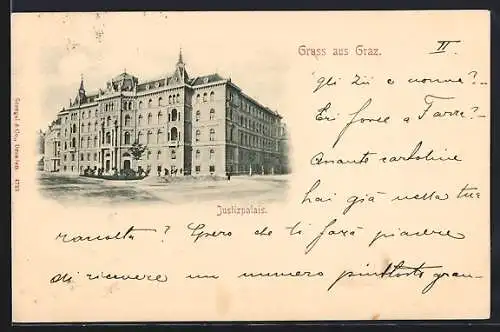 Gruss aus Graz.
II.
gli Zii e nonne?-
Eri forse a Farra?-
Quante cartoline
hai già nella tua
Justizpalais.
raccolta? Spero che ti farà piacere
di ricevere un numero piuttosto gran-
Stengel & Co., Dresden. 4793